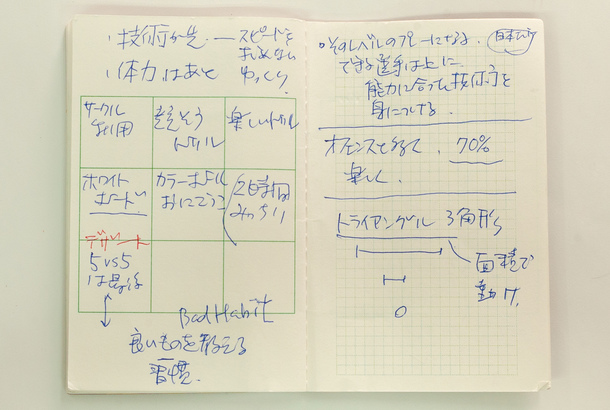 ・技術が先 — スピードを
求めない
ゆっくり
・体力はあと
サークル
利用
競そう
ドリル
楽しいドリル
ホワイト
ボード
カラーボール
おにごっこ
2時間
みっちり
デザート
5vs5
は最後
Bad Habit
良いものを教える
習慣.
・そのレベルのプレーになる。
できる選手は上に
能力に合った技術を
身につける.
オフェンスを 70%
楽しく.
トライアングル 3角形
面積で
動け